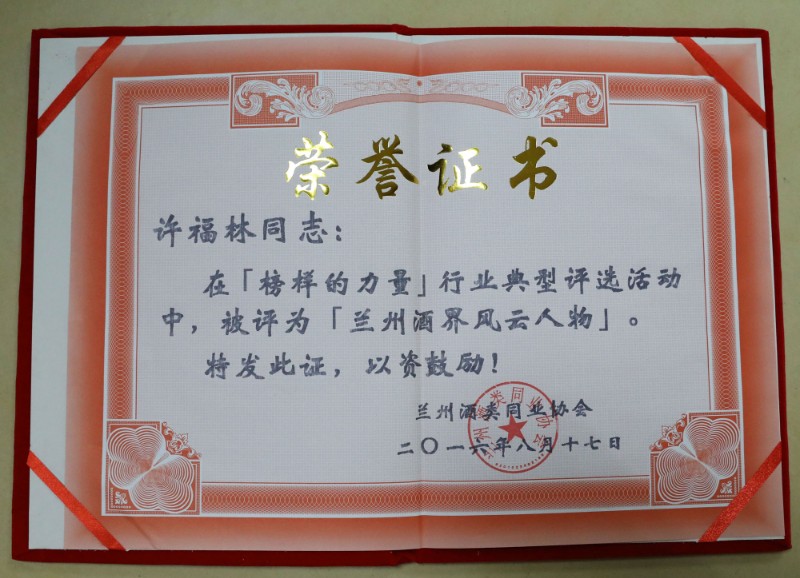 荣誉证书
许福林同志：
在「榜样的力量」行业典型评选活动
中，被评为「兰州酒界风云人物」。
特发此证，以资鼓励！
兰州酒类同业协会
二〇一六年八月十七日
兰州酒类同业协会